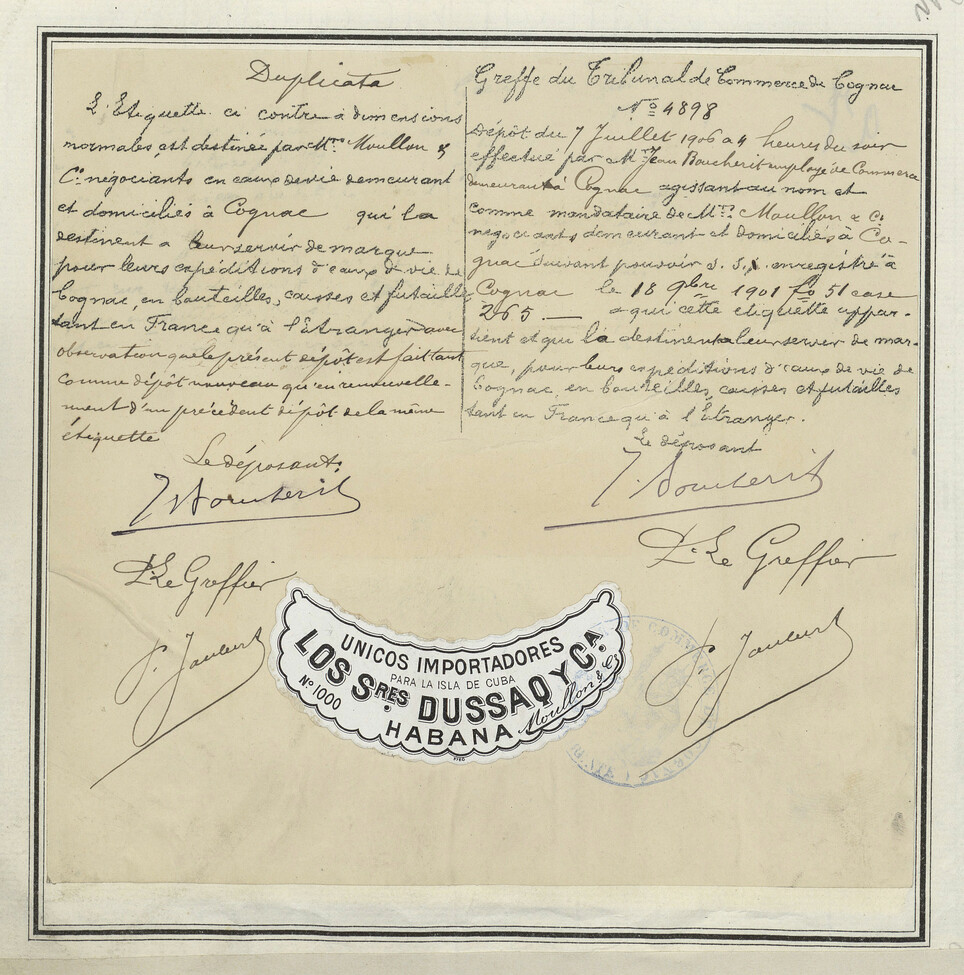 Duplicata
L'Etiquette ci contre à dimensions
normales, est destinée par Mrs Moullon &
Cie négociants en eaux de vie demeurant
et domiciliés à Cognac qui la
destinent a leur servir de marque
pour leurs expéditions d'eaux de vie de
Cognac, en bouteilles, caisses et futailles
tant en France qu'à l'Etranger avec
observation que le présent dépôt est fait tant
comme dépôt nouveau qu'en renouvelle-
ment d'un précédent dépôt de la même
étiquette
Le déposant.
J Boucherit
Pr Le Greffier
Greffe du Tribunal de Commerce de Cognac
No 4898
Dépôt du 7 Juillet 1906 a 4 heures du soir
effectué par Mr Jean Boucherit employé de Commerce
demeurant à Cognac agissant au nom et
comme mandataire de Mrs Moullon & Cie
négociants demeurant et domiciliés à Co-
gnac suivant pouvoir s. s. p. enregistré à
Cognac le 18 9bre 1901 fo 51 case
265. — a qui cette etiquette appar-
tient et qui la destinent a leur servir de mar-
que, pour leurs expéditions d'eaux de vie de
Cognac, en bouteilles, caisses et futailles
tant en France qu'à l'Etranger.
Le déposant
J. Boucherit
Pr Le Greffier
UNICOS IMPORTADORES
PARA LA ISLA DE CUBA
LOS SRES. DUSSAQ Y CA.
No 1000
HABANA
Moullon & Co